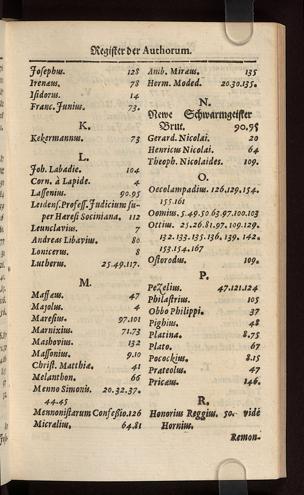 Register der Authorum.
Josephus. 128
Irenæus. 78
Isidorus. 14
Franc. Junius. 73.
K.
Kekermannus. 73
L.
Joh. Labadie. 104
Corn. à Lapide. 4
Lassenius. 90.95
Leidens. Profess. Judicium su-
per Hæresi Sociniana. 112
Leunclavius. 7
Andreas Libavius. 80
Lonicerus. 8
Lutherus. 25.49.117.
M.
Massæus. 47
Majolus. 4
Maresius. 97.101
Marnixius. 71.73
Mashovius. 132
Massonius. 9.10
Christ. Matthiæ. 41
Melanthon. 66
Menno Simonis. 20.32.37.
44.45
Mennonistarum Confessio. 126
Micrælius. 64.81
Amb. Miræus. 135
Herm. Moded. 20.30.135.
N.
Newe Schwarmgeister
Brut. 90.95
Gerard. Nicolai. 20
Henricus Nicolai. 64
Theoph. Nicolaides. 109.
O.
Oecolampadius. 126.129.154.
155.161
Oomius. 5.49.50.63.97.100.103
Ottius. 25.26.81.97.109.129.
132.133.135.136.139.142.
153.154.167
Ostorodus. 109.
P.
Pezelius. 47.121.124
Philastrius. 105
Obbo Philippi. 37
Pighius. 48
Platina. 8.75
Plato. 67
Pocockius. 8.15
Prateolus. 47
Pricæus. 146.
R.
Honorius Reggius. 50. vide
Hornius.
Remon-